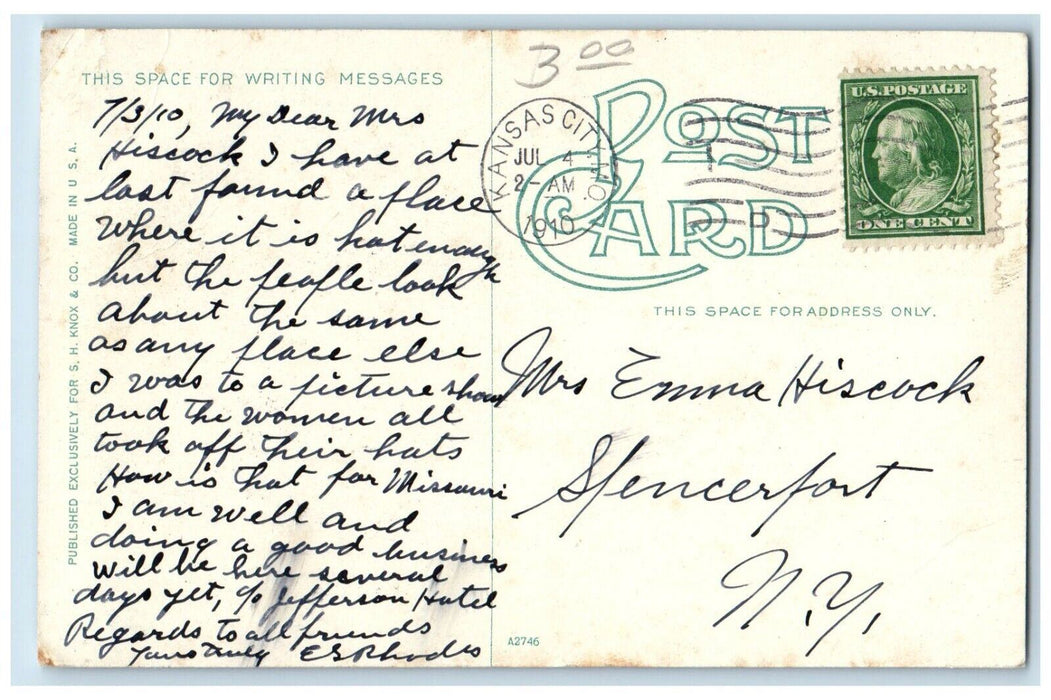 THIS SPACE FOR WRITING MESSAGES
7/3/10, My Dear Mrs
Hiscock I have at
last found a place
where it is hot enough
but the people look
about the same
as any place else
I was to a picture show
and the women all
took off their hats
How is that for Missouri
I am well and
doing a good business
will be here several
days yet, c/o Jefferson Hotel
Regards to all friends
Yours Truly ES Rhodes
PUBLISHED EXCLUSIVELY FOR S. H. KNOX & CO. MADE IN U.S.A.
3 00
POST CARD
KANSAS CITY, MO.
JUL 4
2-AM
1910
D
U.S. POSTAGE
ONE CENT
THIS SPACE FOR ADDRESS ONLY.
Mrs Emma Hiscock
Spencerport
N.Y.
A2746